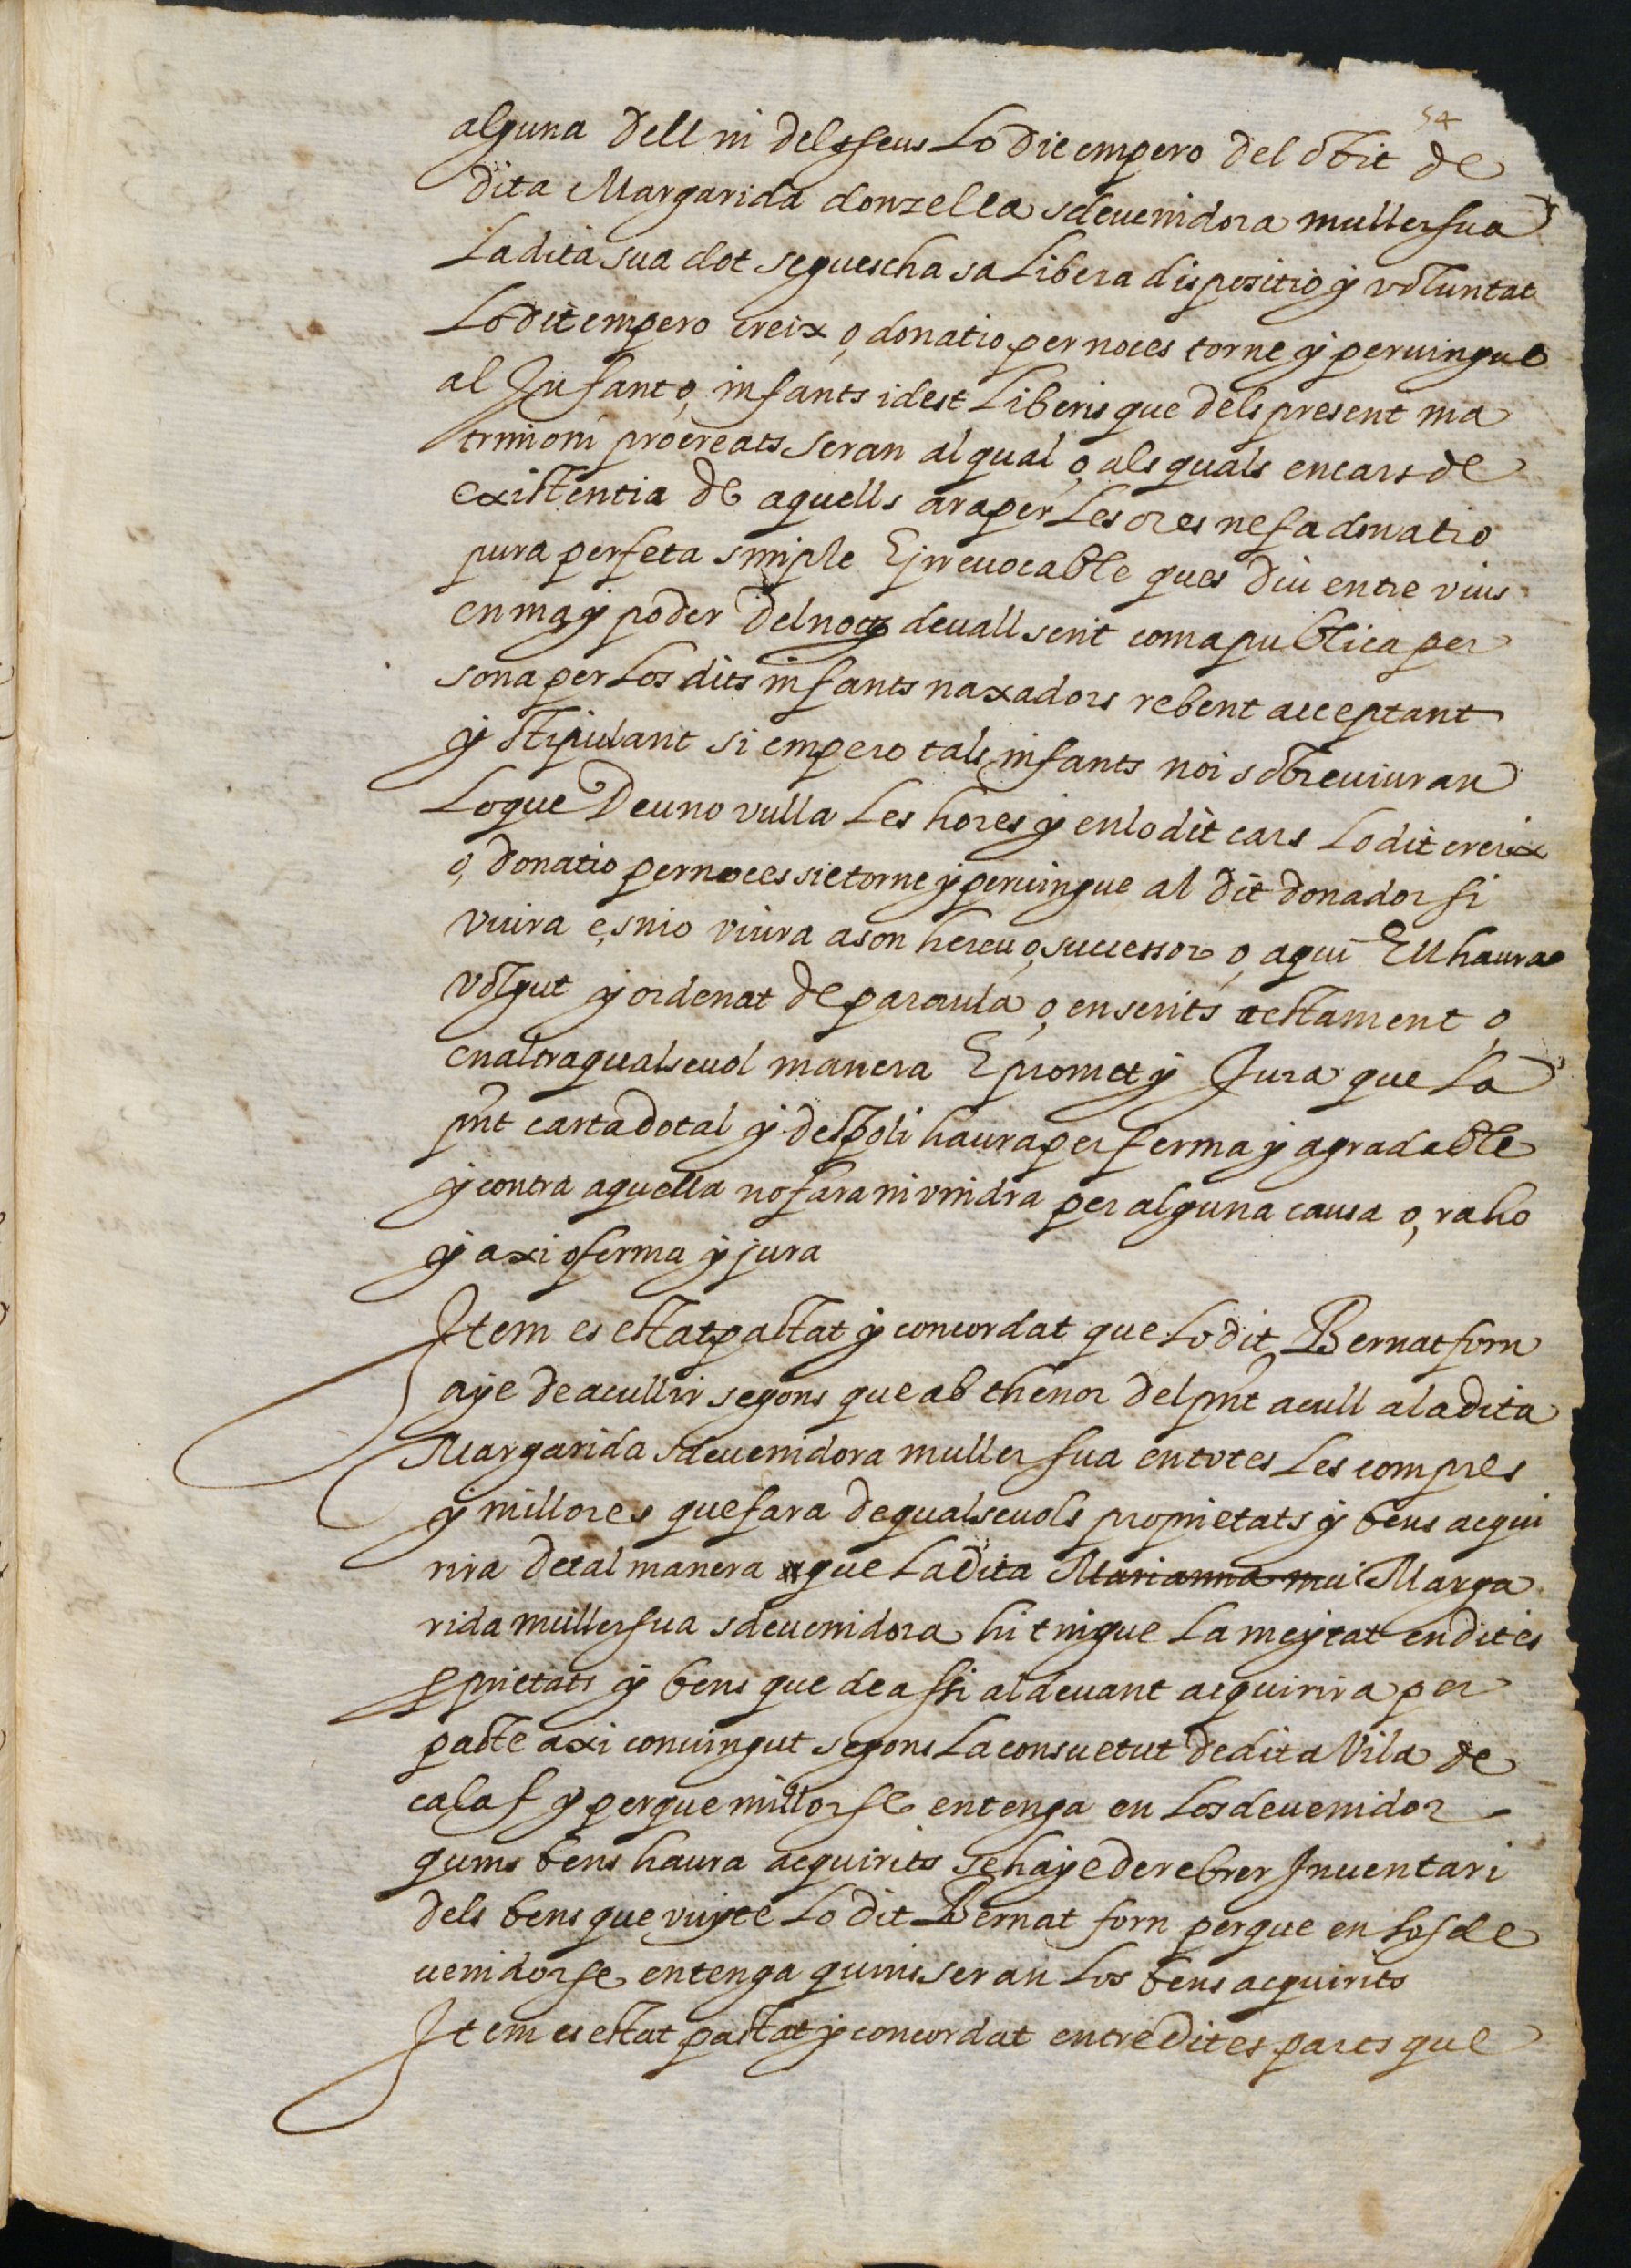 54
alguna dell ni dels seus Lo dit empero del obit de
dita Margarida donzella sdeuenidora muller sua
La dita sua dot seguescha sa libera dispositio y voluntat
Lo dit empero creix o, donatio per noces torne y peruingue
al Infant o, infants idest Liberis que dels present ma
trimoni procreats seran al qual o, als quals en cars de
existentia de aquells ara per les ores ne fa donatio
pura perfeta simple E irreuocable ques diu entre vius
en ma y poder del noty deuall scrit coma publica per
sona per los dits infants naxadors rebent acceptant
y stipulant si empero tals infants noi sobreuiuran
Loque Deu no vulla Les hores y en lo dit cars Lo dit creix
o, donatio per noces sie torne y peruingue al dit donador si
viura e, sino viura a son hereu o, successor o, a qui Ell haura
volgut y ordenat de paraula o, en scrits testament o,
en altra qualseuol manera E promet y Jura que La
pnt carta dotal y despoli haura per ferma y agradable
y contra aquella no fara ni vindra per alguna causa o, raho
y axi o ferma y jura
Item es estat pactat y concordat que Lo dit Bernat forn
aye de acullir segons que ab thenor del pnt acull a la dita
Margarida sdeuenidora muller sua en totes Les compres
y millores que fara de qualseuols proprietats y bens acqui
rira de tal manera que La dita Marianna mu Marga
rida muller sua sdeuenidora hi tingue La meytat en dites
pprietats y bens que de assi al deuant acquirira per
pacte axi conuingut segons La consuetut de dita Vila de
calaf y perque millor se entenga en Los deuenidor
quins bens haura acquirits se haye de rebrer Inuentari
dels bens que vuy te Lo dit Bernat forn perque en Los de
uenidor se entenga quins seran Los bens acquirits
Item es estat pactat y concordat entre dites parts que